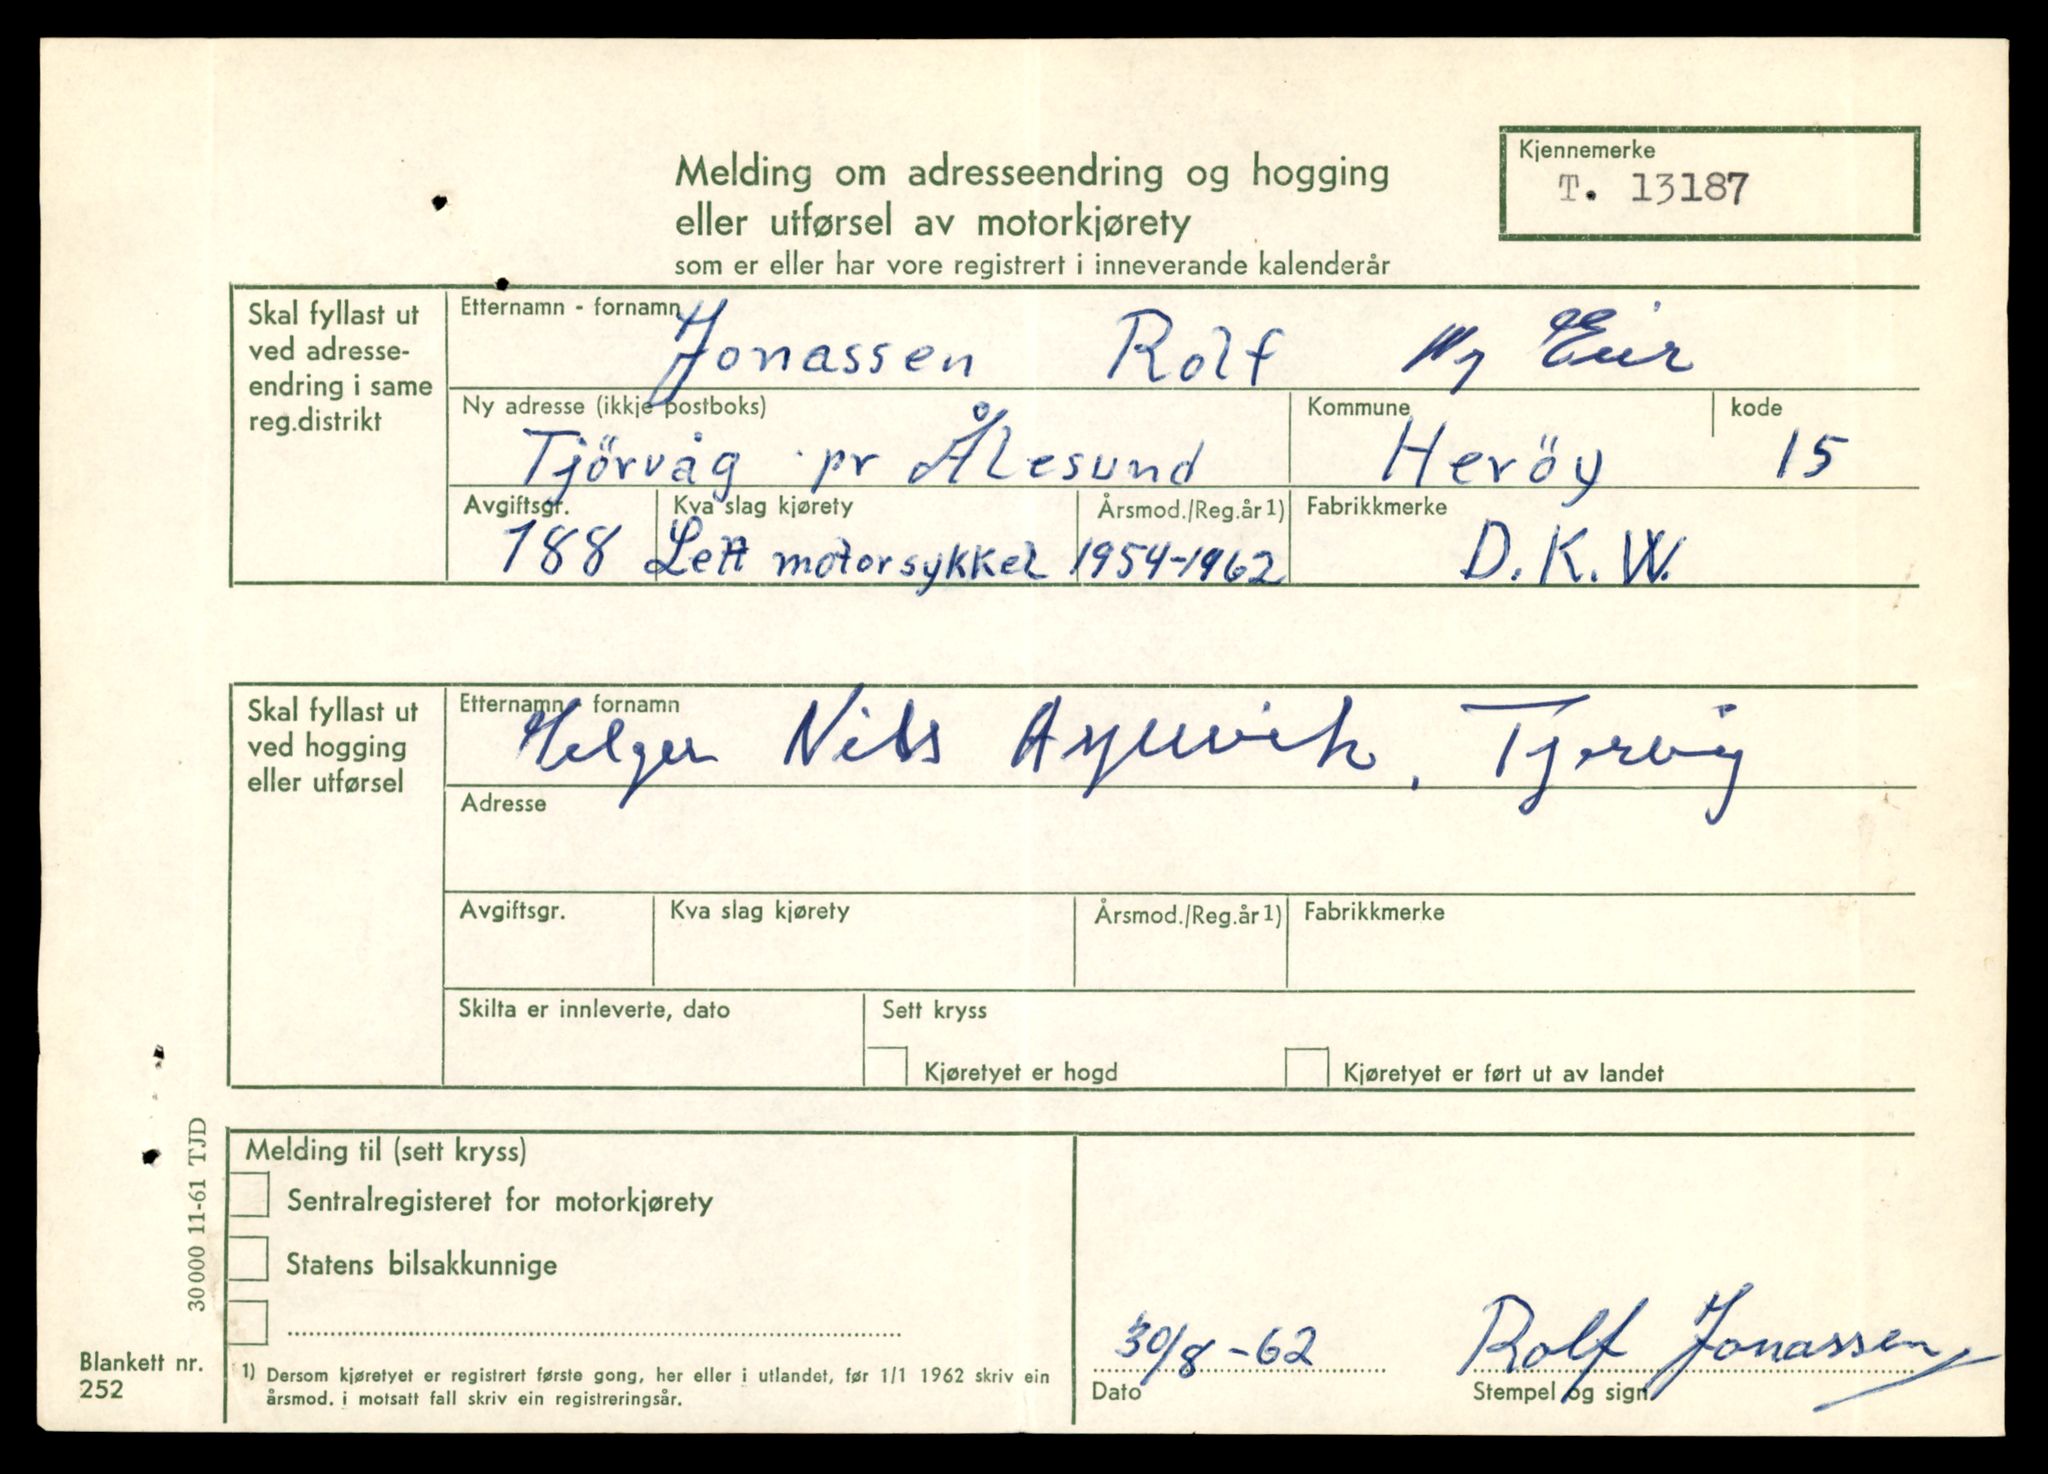 Kjennemerke
T. 13187
Melding om adresseendring og hogging
eller utførsel av motorkjørety
som er eller har vore registrert i inneverande kalenderår
Skal fyllast ut
ved adresse-
endring i same
reg.distrikt
Etternamn - fornamn
Jonassen Rolf ny Eier
Ny adresse (ikkje postboks)
Kommune
kode
Tjörvåg pr Ålesund
Heröy
15
Avgiftsgr.
Kva slag kjørety
Årsmod./Reg.år 1)
Fabrikkmerke
188
Lett motorsykkel
1954-1962
D.K.W.
Skal fyllast ut
ved hogging
eller utførsel
Etternamn - fornamn
Selger Nils
Adresse
Avgiftsgr.
Kva slag kjørety
Årsmod./Reg.år 1)
Fabrikkmerke
Skilta er innleverte, dato
Sett kryss
Kjøretyet er hogd
Kjøretyet er ført ut av landet
Melding til (sett kryss)
Sentralregisteret for motorkjørety
Statens bilsakkunnige
30000 11-61 TJD
Blankett nr.
252
1) Dersom kjøretyet er registrert første gong, her eller i utlandet, før 1/1 1962 skriv ein
årsmod. i motsatt fall skriv ein registreringsår.
30/8-62
Dato
Rolf Jonassen
Stempel og sign.